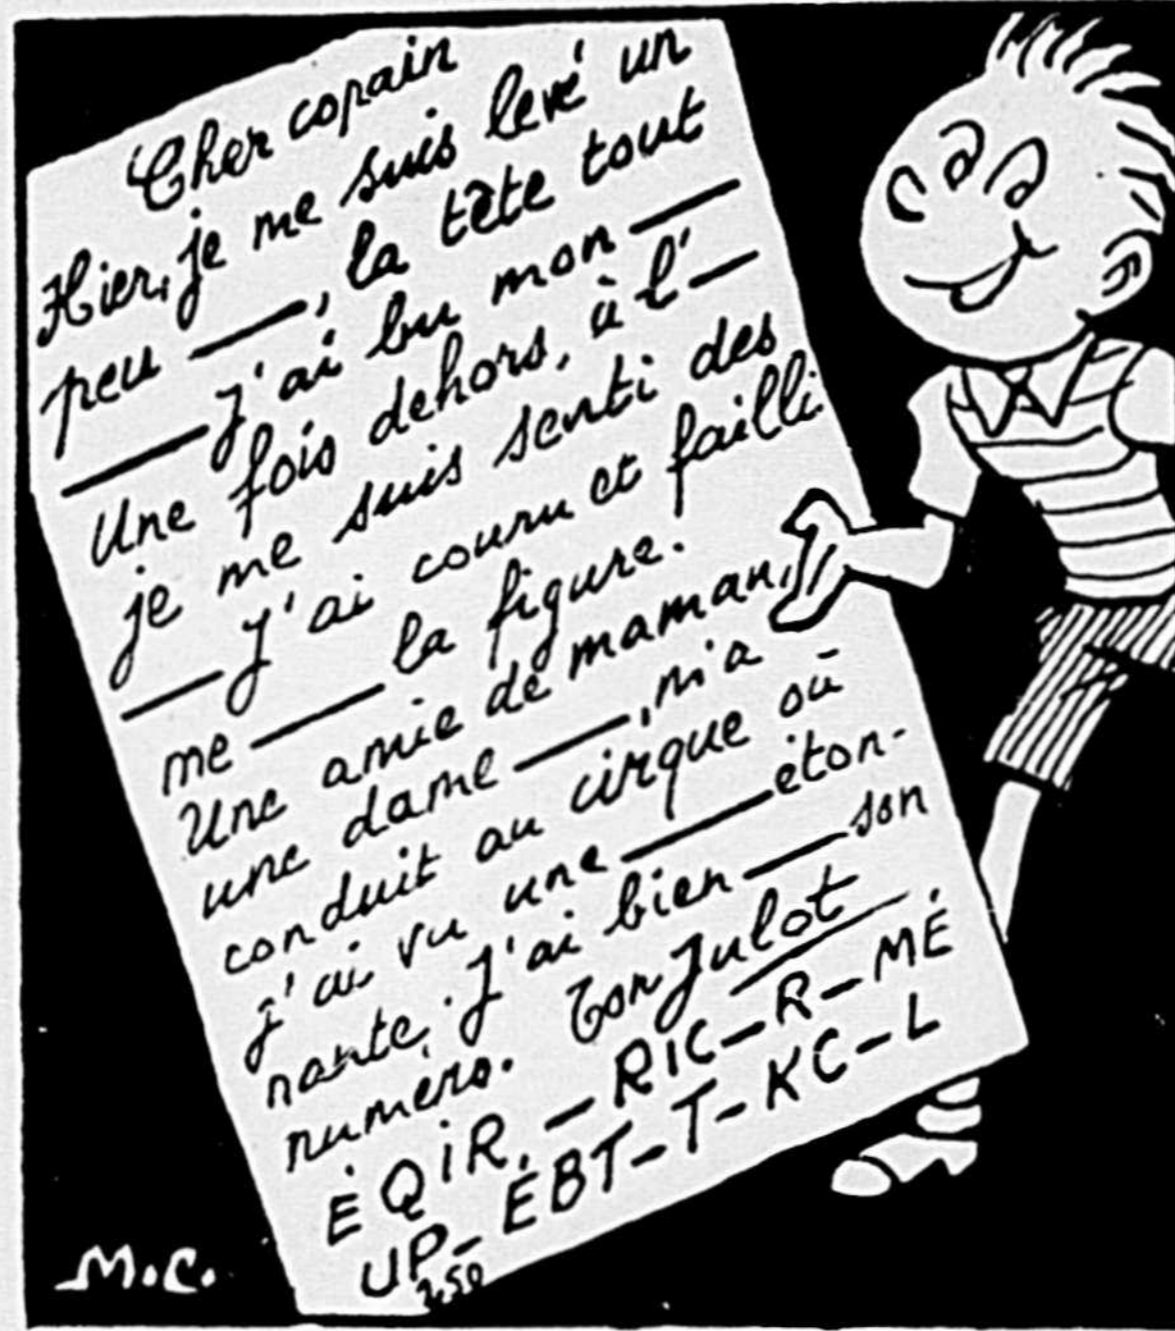 Cher copain
Hier, je me suis levé un
peu ____, la tête tout
____ J'ai bu mon ____
Une fois dehors, à l'____
je me suis senti des
____ J'ai couru et failli
me ____ la figure.
Une amie de maman,
une dame ____, m'a
conduit au cirque où
j'ai vu une ____ éton-
nante. J'ai bien ____ son
numéro. Ton Julot
ÉQIR. — RIC — R — MÉ
UP — ÉBT — T — KC — L
M.C.